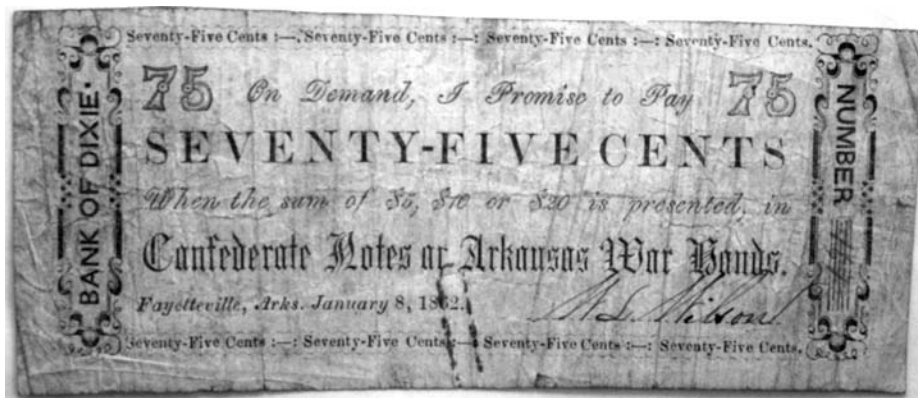 Seventy-Five Cents :—: Seventy-Five Cents :—: Seventy-Five Cents :—: Seventy-Five Cents.
BANK OF DIXIE.
75 On Demand, I Promise to Pay 75
SEVENTY-FIVE CENTS
When the sum of $5, $10 or $20 is presented, in
Confederate Notes or Arkansas War Bonds.
Fayetteville, Arks. January 8, 1862.
W. L. Wilson
Seventy-Five Cents :—: Seventy-Five Cents :—: Seventy-Five Cents :—: Seventy-Five Cents.
NUMBER